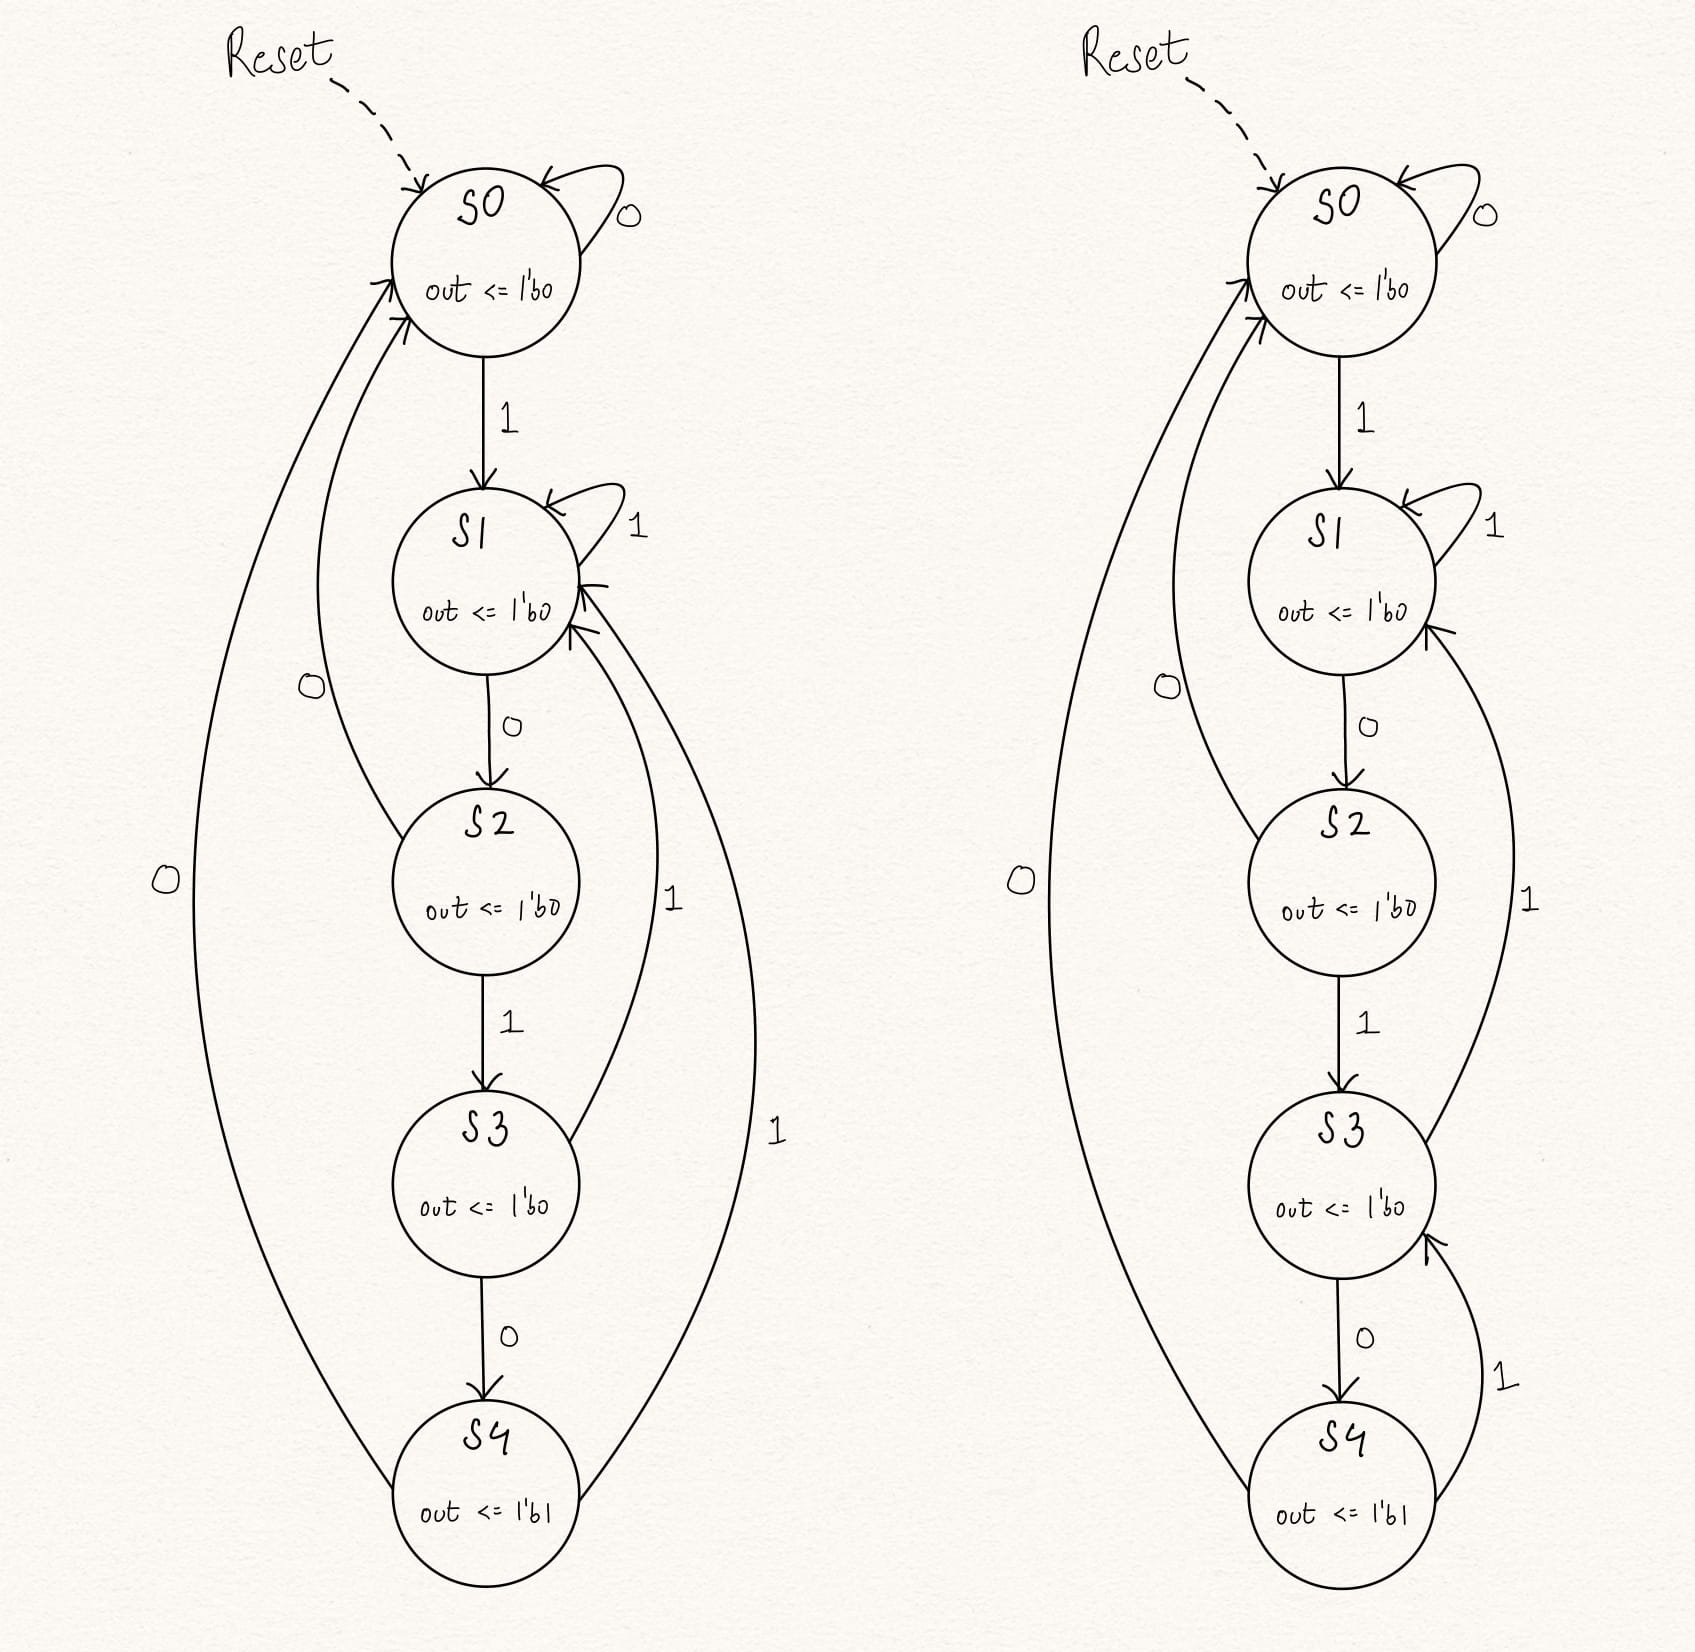 Reset
S0
out <= 1'b0
0
1
S1
out <= 1'b0
1
0
0
S2
out <= 1'b0
0
1
1
S3
out <= 1'b0
1
0
S4
out <= 1'b1
Reset
S0
out <= 1'b0
0
1
S1
out <= 1'b0
1
0
0
S2
out <= 1'b0
0
1
1
S3
out <= 1'b0
0
1
S4
out <= 1'b1